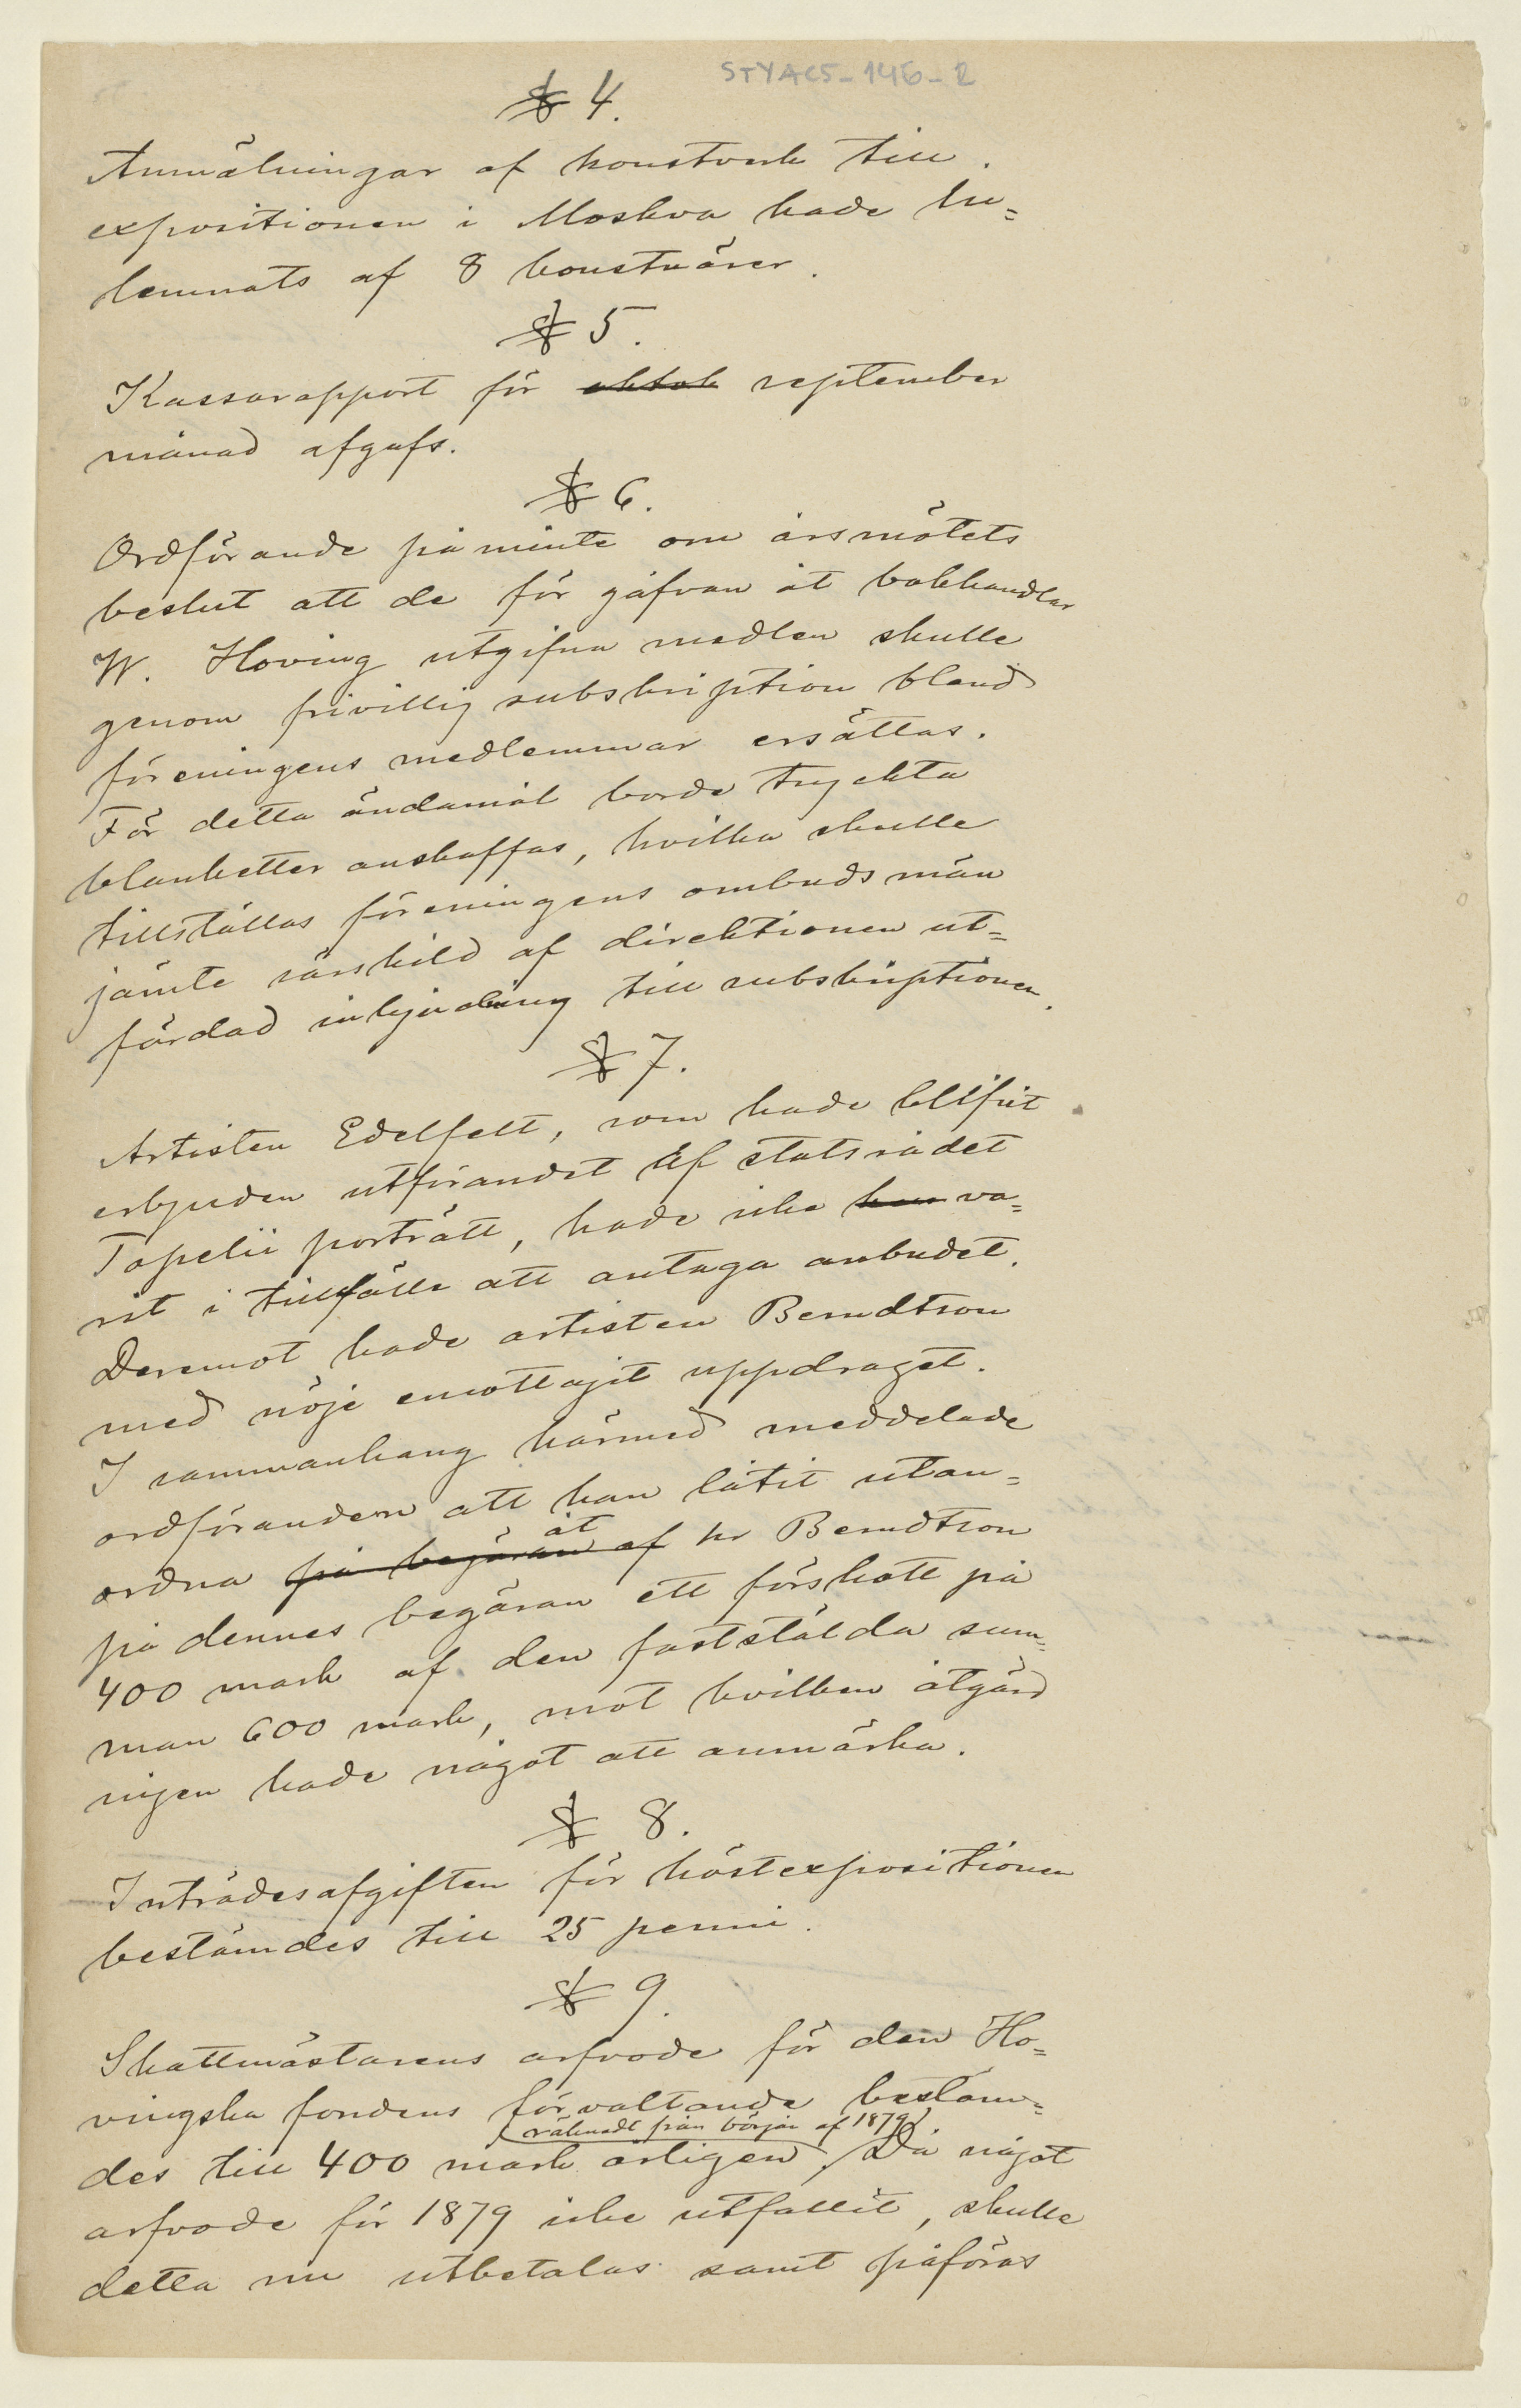 STYAC5-146-2
§ 4.
Anmälningar af konstverk till
expositionen i Moskva hade in=
lemnats af 8 konstnärer.
§ 5.
Kassarapport för oktob september
månad afgafs.
§ 6.
Ordförande påminte om årsmötets
beslut att de för gåfvan åt bokhandlar
W. Hoving utgifna medlen skulle
genom frivillig subskription bland
föreningens medlemmar ersättas.
För detta ändamål borde tryckta
blanketter anskaffas, hvilka skulle
tillställas föreningens ombudsmän
jämte särskild af direktionen ut=
färdad inbjudning till subskriptionen.
§ 7.
Artisten Edelfelt, som hade blifvit
erbjuden utförandet af statsrådet
Topelii porträtt, hade icke han va=
rit i tillfälle att antaga anbudet.
Deremot hade artisten Berndtson
med nöje emottagit uppdraget.
I sammanhang härmed meddelade
ordföranden att han låtit utan=
ordna på begäran af åt hr Berndtson
på dennes begäran ett förskott på
400 mark af den fastställda sum=
man 600 mark, mot hvilken åtgärd
ingen hade något att anmärka.
§ 8.
Inträdesafgiften för höstexpositionen
bestämdes till 25 penni.
§ 9.
Skattmästarens arfvode för den Ho=
vingska fondens förvaltande bestäm=
räknadt från början af 1879
des till 400 mark årligen. Då något
arfvode för 1879 icke utfallit, skulle
detta nu utbetalas samt påföras